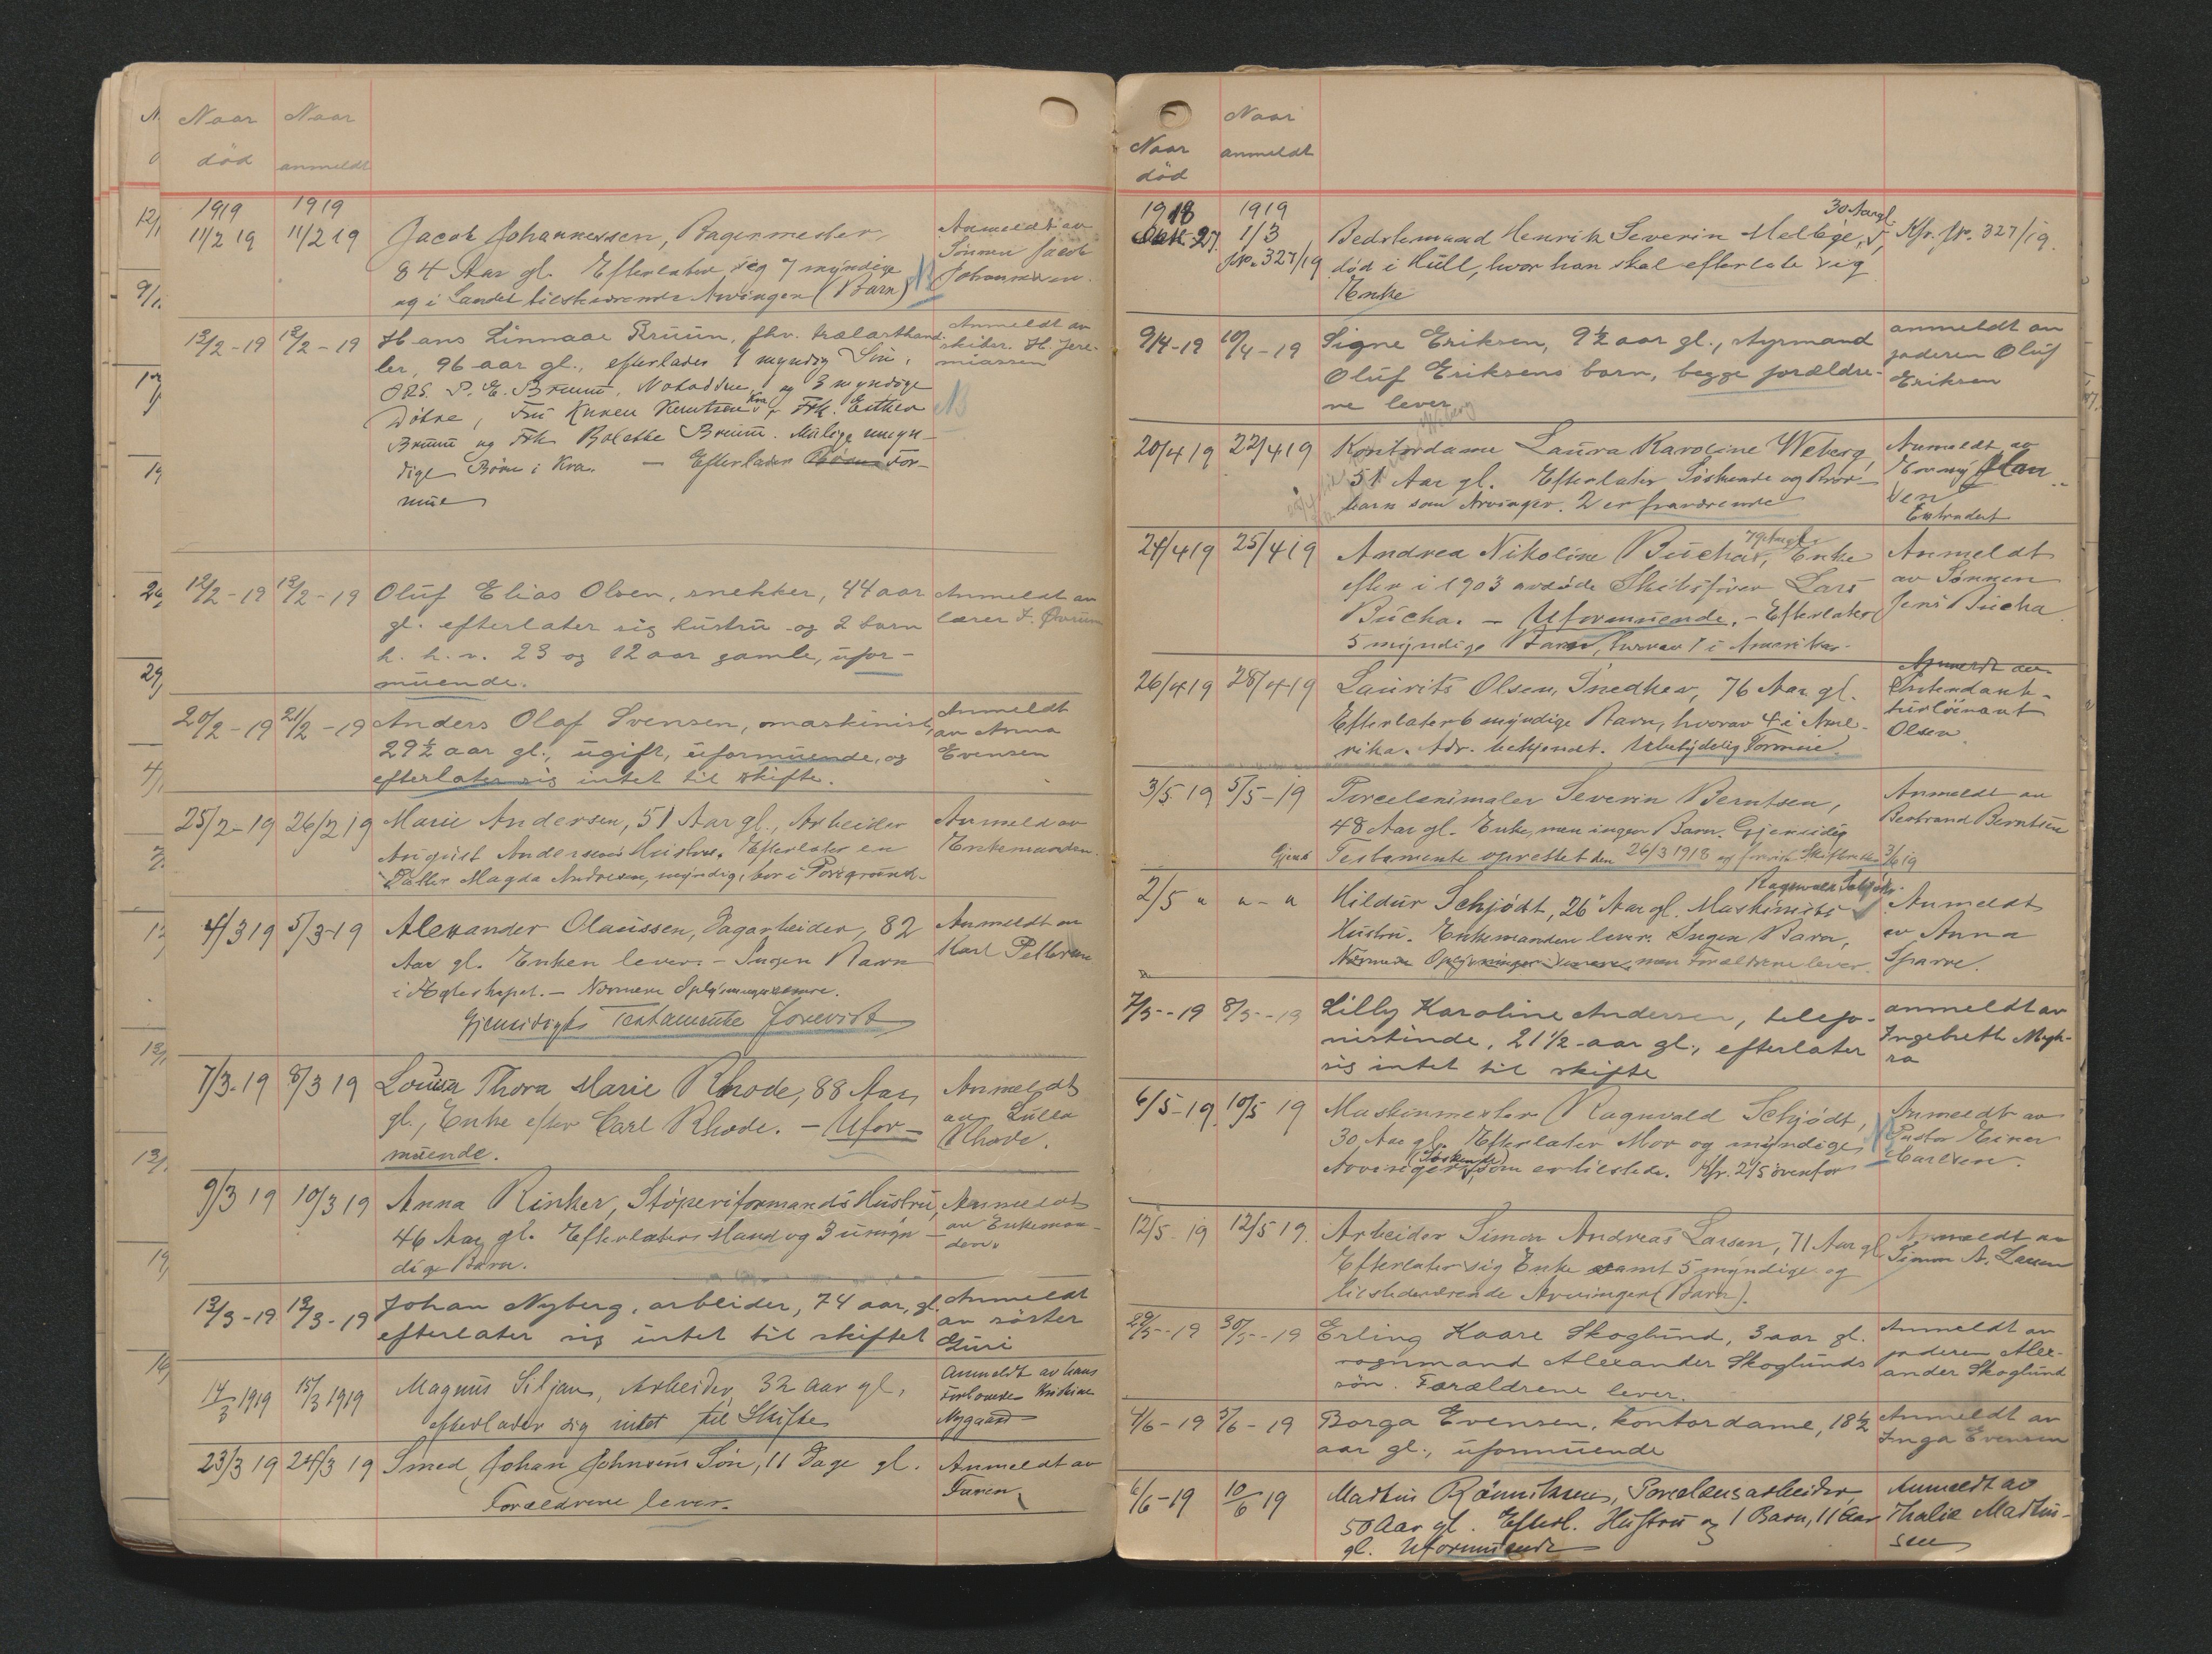 Naar Naar
död anmeldt
1919 1919
11/2 19 11/2 19 Jacob Johannessen, Bagermester, Anmeldt av
84 Aar gl. Efterlater sig 7 myndige Sönnen Jacob
og i Landet tilstedeværende Arvinger (Barn) Johannessen.
13/2-19 13/2-19 Hans Linnaae Bruun, fhv. trælasthand- Anmeldt av
ler, 96 aar gl., efterlader 1 myndig Sön, skibsr. H. Jere-
O.R.S. P. E. Bruun, Notodden, og 3 myndige miassen
Døtre, Fru Karen Knutsen Kra, Frk. Esther
Bruun og Frk Bolette Bruun. Mulige umyn-
dige Börn i Kra. — Efterlader For-
mue
12/2-19 13/2-19 Oluf Elias Olsen, snekker, 44 aar Anmeldt av
gl. efterlater sig hustru og 2 barn lærer F. Övrum
h. h. v. 23 og 12 aar gamle, ufor-
muende.
20/2-19 21/2-19 Anders Olaf Svensen, maskinist, Anmeldt
29½ aar gl., ugift, uformuende, og av Anna
efterlater sig intet til skifte. Evensen
25/2-19 26/2 19 Marie Andersen, 51 Aar gl., Arbeider Anmeld av
August Andersens Hustru. Efterlater en Enkemanden.
Datter Magda Andersen, myndig, bor i Porsgrund.
4/3 19 5/3-19 Alexander Olaussen, Dagarbeider, 82 Anmeldt av
Aar gl. Enken lever. – Ingen Barn Karl Pettersen
i Ægteskapet. – Nærmere Oplysninger senere.
Gjensidigt Testamente forevist
7/3-19 8/3 19 Louisa Thora Marie Rhode, 88 Aar Anmeldt
gl., Enke efter Carl Rhode. – Ufor- av Lulla
muende. Rhode.
9/3 19 10/3 19 Anna Rinker, Støperiformands Hustru, Anmeldt
46 Aar gl. Efterlater Mand og 3 umyn- av Enkeman-
dige Barn. den.
12/3-19 13/3-19 Johan Nyberg, arbeider, 74 aar, gl. Anmeldt
efterlater sig intet til skiftet av söster
Guri
14/3 1919 15/3 1919 Magnus Siljan, Arbeider, 32 aar gl, Anmeldt av hans
efterlader sig intet til Skifte Forlovede Kristine
Nygaard
23/3 19 24/3 19 Smed Johan Johnsens Sön, 11 Dage gl. Anmeldt av
Forældrene lever. Faren
Naar
Naar anmeldt
död
1918 1919 30 Aar gl.
Okt. 27. 1/3 Bedstemand Henrik Severin Melbye, Kfr. jr. 327/19.
jr. 327/19 död i Hull, hvor han skal efterlate sig
Enke
9/4-19 10/4-19 Signe Eriksen, 9½ aar gl., styrmand anmeldt av
Oluf Eriksens barn, begge forældre- faderen Oluf
ne lever Eriksen
20/4 19 22/4 19 Kontordame Laura Karoline Weberg, Anmeldt av
51 Aar gl. Efterlater Söskende og Bror- Emmy
barn som Arvinger. 2 er fraværende
Extradert
24/4 19 25/4 19 Andrea Nikoline Bucha, 79 Aar gl. Enke Anmeldt
efter i 1903 avdøde Skibsfører Lars av Sønnen
Bucha. – Uformuende. – Efterlater Jens Bucha.
5 myndige Barn, hvorav 1 i Amerika.
26/4 19 28/4 19 Laurits Olsen, Snedker, 76 Aar gl. Anmeldt av
Efterlater 6 myndige Barn, hvorav 4 i Ame- Intendant-
rika. Adr. bekjendt. Ubetydelig Formue. turlöinant
Olsen.
3/5 19 5/5-19 Porcelænsmaler Severin Berntsen, Anmeldt av
48 Aar gl. Enke, men ingen Barn. Gjensidig Bertrand Berntsen
Testamente oprettet den 26/3 1918 og forevist Skifteretten 3/6 19
2/5 " " - " Hildur Schjödt, 26 Aar gl. Maskinist Ragnvald Schjödts Anmeldt
Hustru. Enkemanden lever. Ingen Barn, av Anna
Nærmere Oplysninger senere, men Forældrene lever. Sparre.
7/5-19 8/5-19 Lilly Karoline Andersen, telefo- anmeldt av
nistinde, 21½ aar gl., efterlater Ingebreth Myh-
sig intet til skifte ra
6/5-19 10/5 19 Maskinmester Ragnvald Schjödt, Anmeldt av
30 Aar gl. Efterlater Mor og myndige Pastor Einar
Arvinger (Söskende), som er tilstede. Kfr. 2/5 ovenfor Carlsen.
12/5-19 12/5 19. Arbeider Simon Andreas Larsen, 71 Aar gl. Anmeldt av
Efterlater sig Enke samt 5 myndige og Simon A. Larsen
tilstedeværende Arvinger (Barn).
29/5-19 30/5-19 Erling Kaare Skoglund, 3 aar gl. Anmeldt av
vognmand Alexander Skoglunds faderen Alex-
sön. Forældrene lever. ander Skoglund
4/6-19 5/6-19 Borga Evensen, kontordame, 18½ Anmeldt av
aar gl., uformuende Inga Evensen
6/6-19 10/6 19 Mathis Porcelænsarbeider, Anmeldt av
50 Aar gl. Efterl. Hustru og 1 Barn, 11 Aar Thalie Mathis-
gl. Uformuende sen